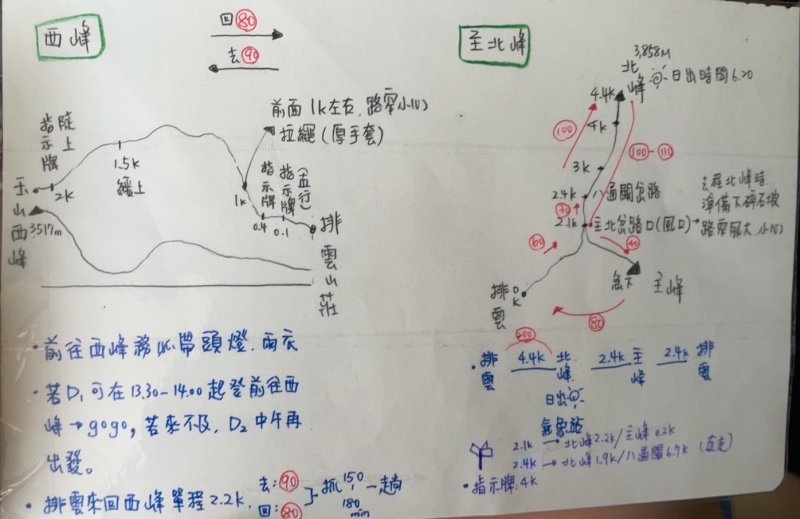 西峰
回 80
去 90
指示牌
陡上
前面 1k左右, 路窄小心
拉繩 (厚手套)
1.5k
纜上
2k
1k
指示牌
指示牌
(五行)
0.4
0.1
玉山西峰
3517m
排雲山莊
・前往西峰務必帶頭燈. 雨衣
・若D1可在13.30-14.00起登前往西
峰→gogo, 若來不及, D2中午再
出發。
・排雲來回西峰單程2.2K.
去: 90
回: 80
抓 150 180 min 一趟
主北峰
3,858M
北峰
日出時間 6.20
4.4k
4k
100
100-110
3k
2.4k 八通關岔路
30
2.1k 主北岔路口(風口)
去程北峰時
準備下碎石坡
路窄風大.小心
60
40
排雲
0K
急下
主峰
50
・排雲 4.4k 北峰 2.4k 主峰 2.4k 排雲
日出
氣象站
2.1k → 北峰2.2k/主峰0.2k
2.4k → 北峰1.9k/八通關6.7k (直走)
・指示牌.4K